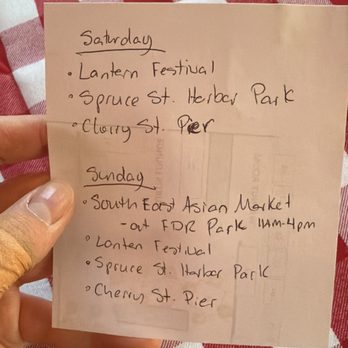 Saturday
• Lantern Festival
• Spruce St. Harbor Park
• Cherry St. Pier
Sunday
• South East Asian Market
- at FDR Park 11AM-4pm
• Lanten Festival
• Spruce St. Harbor Park
• Cherry St. Pier